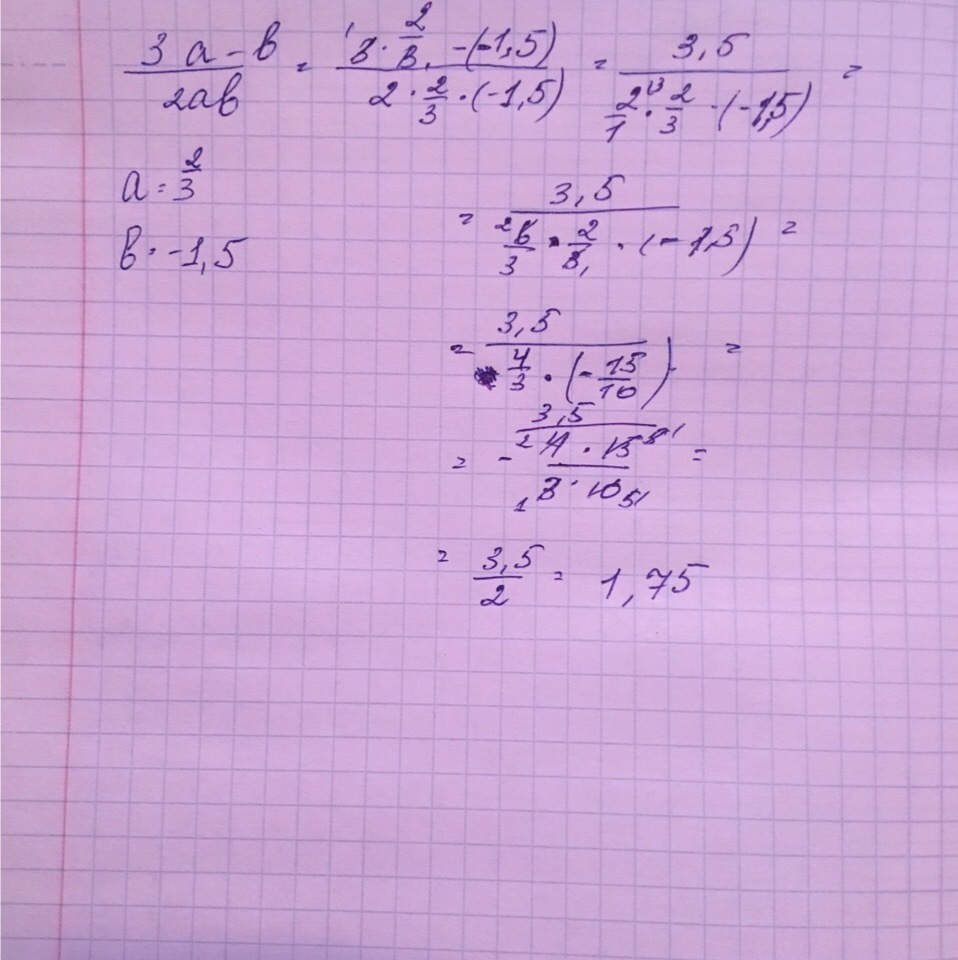 3a - b / 2ab = 3 · 2/3 - (-1,5) / 2 · 2/3 · (-1,5) = 3,5 / 2/1 · 2/3 · (-1,5) =
a = 2/3
= 3,5 / 6/3 · 2/3 · (-1,5) =
b = -1,5
= 3,5 / 4/3 · (-15/10) =
= - 3,5 / 4 · 15 / 3 · 10 =
= 3,5 / 2 = 1,75